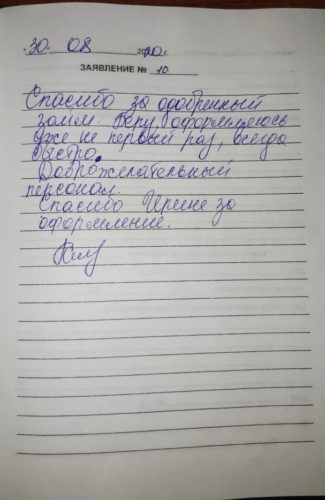 30. 08 2020 г.
ЗАЯВЛЕНИЕ № 10
Спасибо за одобренный
займ. Беру, оформляюсь
уже не первый раз, всегда
быстро.
Доброжелательный
персонал.
Спасибо Ирине за
оформление.